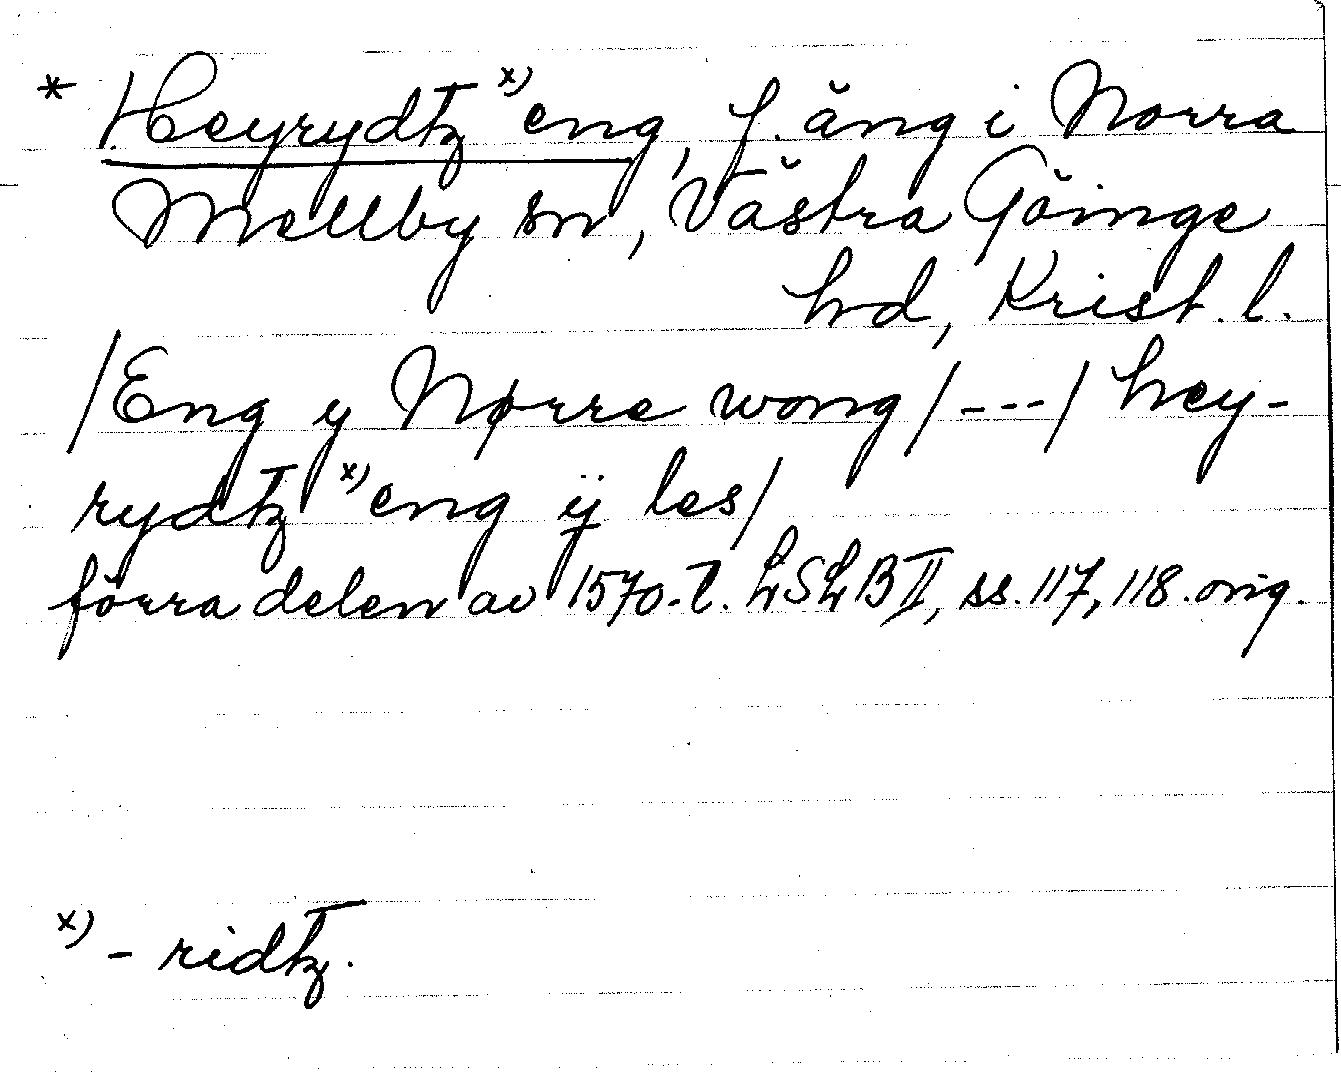 * Heyrydtz x) eng, f. äng i Norra
Mellby sn, Västra Göinge
hd, Krist. l.
/Eng y Nørre wong/---/ hey-
rydtz x) eng ÿ les/
förra delen av 1570-t. LSLB II, ss. 117, 118. orig.
x) - ridtz.